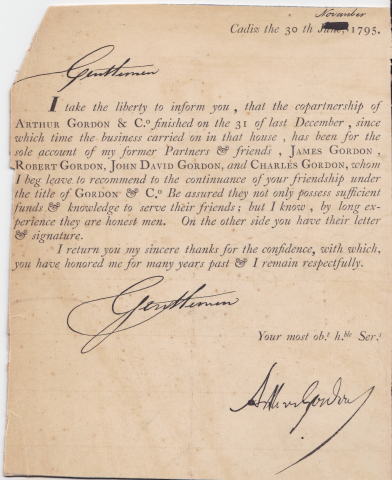 November
Cadiz the 30 th June, 1795.
Gentlemen
I take the liberty to inform you, that the copartnership of
ARTHUR GORDON & C.º finished on the 31 of last December, since
which time the business carried on in that house, has been for the
sole account of my former Partners & friends, JAMES GORDON,
ROBERT GORDON, JOHN DAVID GORDON, and CHARLES GORDON, whom
I beg leave to recommend to the continuance of your friendship under
the title of GORDON & C.º Be assured they not only possess sufficient
funds & knowledge to serve their friends; but I know, by long ex-
perience they are honest men. On the other side you have their letter
& signature.
I return you my sincere thanks for the confidence, with which,
you have honored me for many years past & I remain respectfully.
Gentlemen
Your most ob.t h.ble Ser.t
Arthur Gordon